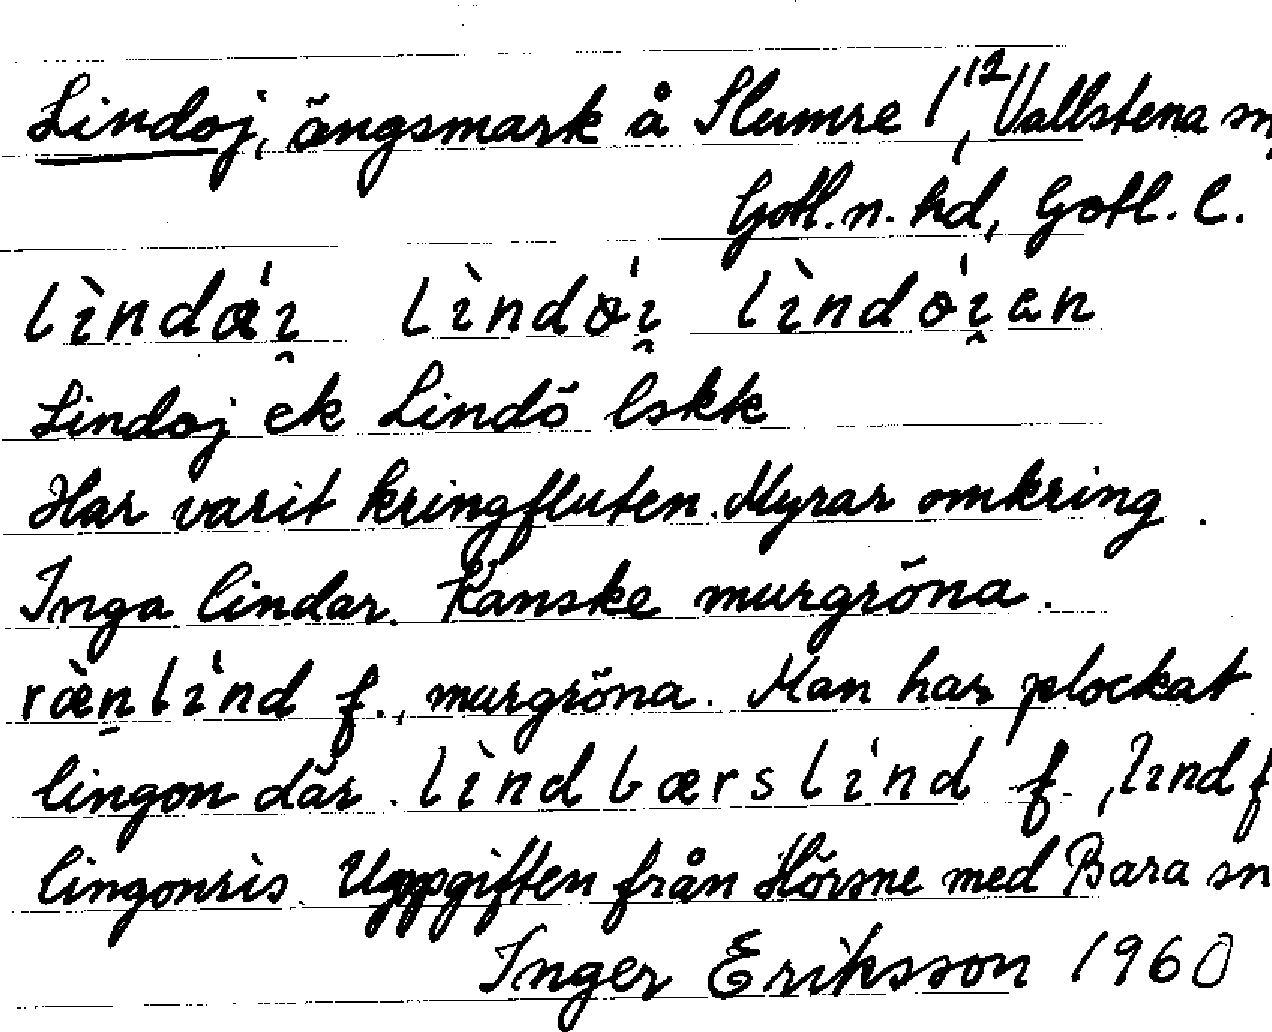 Lindoj, ängsmark å Slumre 1¹², Vallstena sn,
Gotl. n. hd, Gotl. l.
lìndæ̀i̯ lìndói̯ lìndói̯an
Lindoj ek Lindö lskk
Har varit kringfluten. Myrar omkring.
Inga lindar. Kanske murgröna.
ræ̀ṉlínd f., murgröna. Man har plockat
lingon där. lìndbærslínd f., lɪnd f
lingonris. Uppgiften från Hörsne med Bara sn
Inger Eriksson 1960